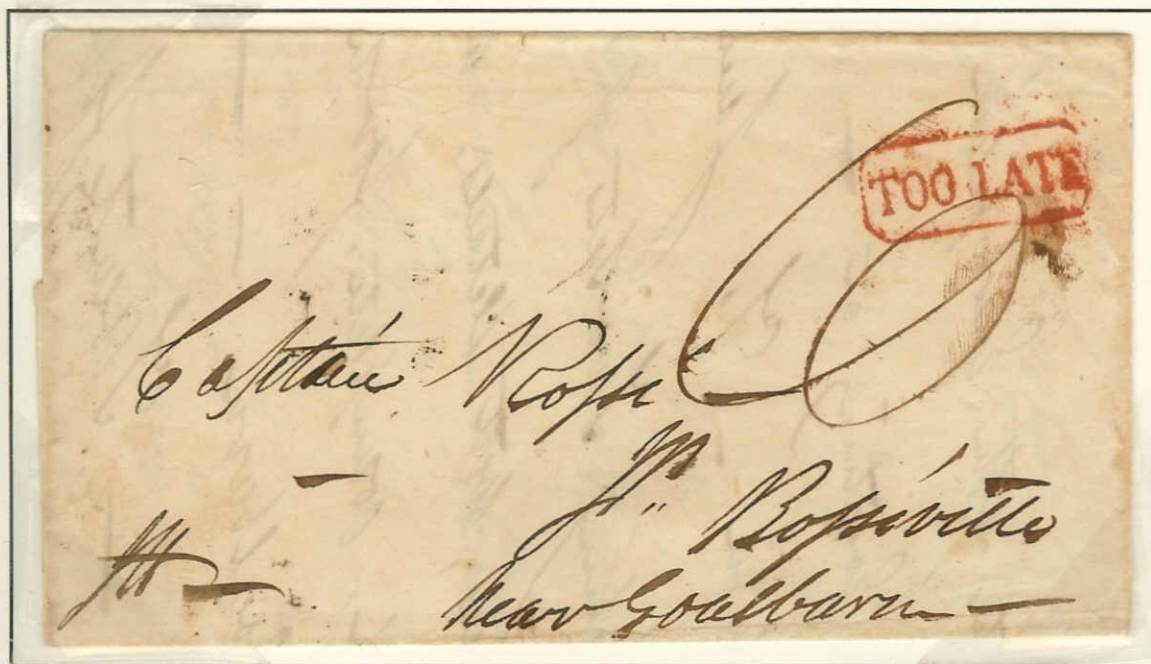 TOO LATE
6
Captain Rossi
JP
Rossiville
near Goulburn